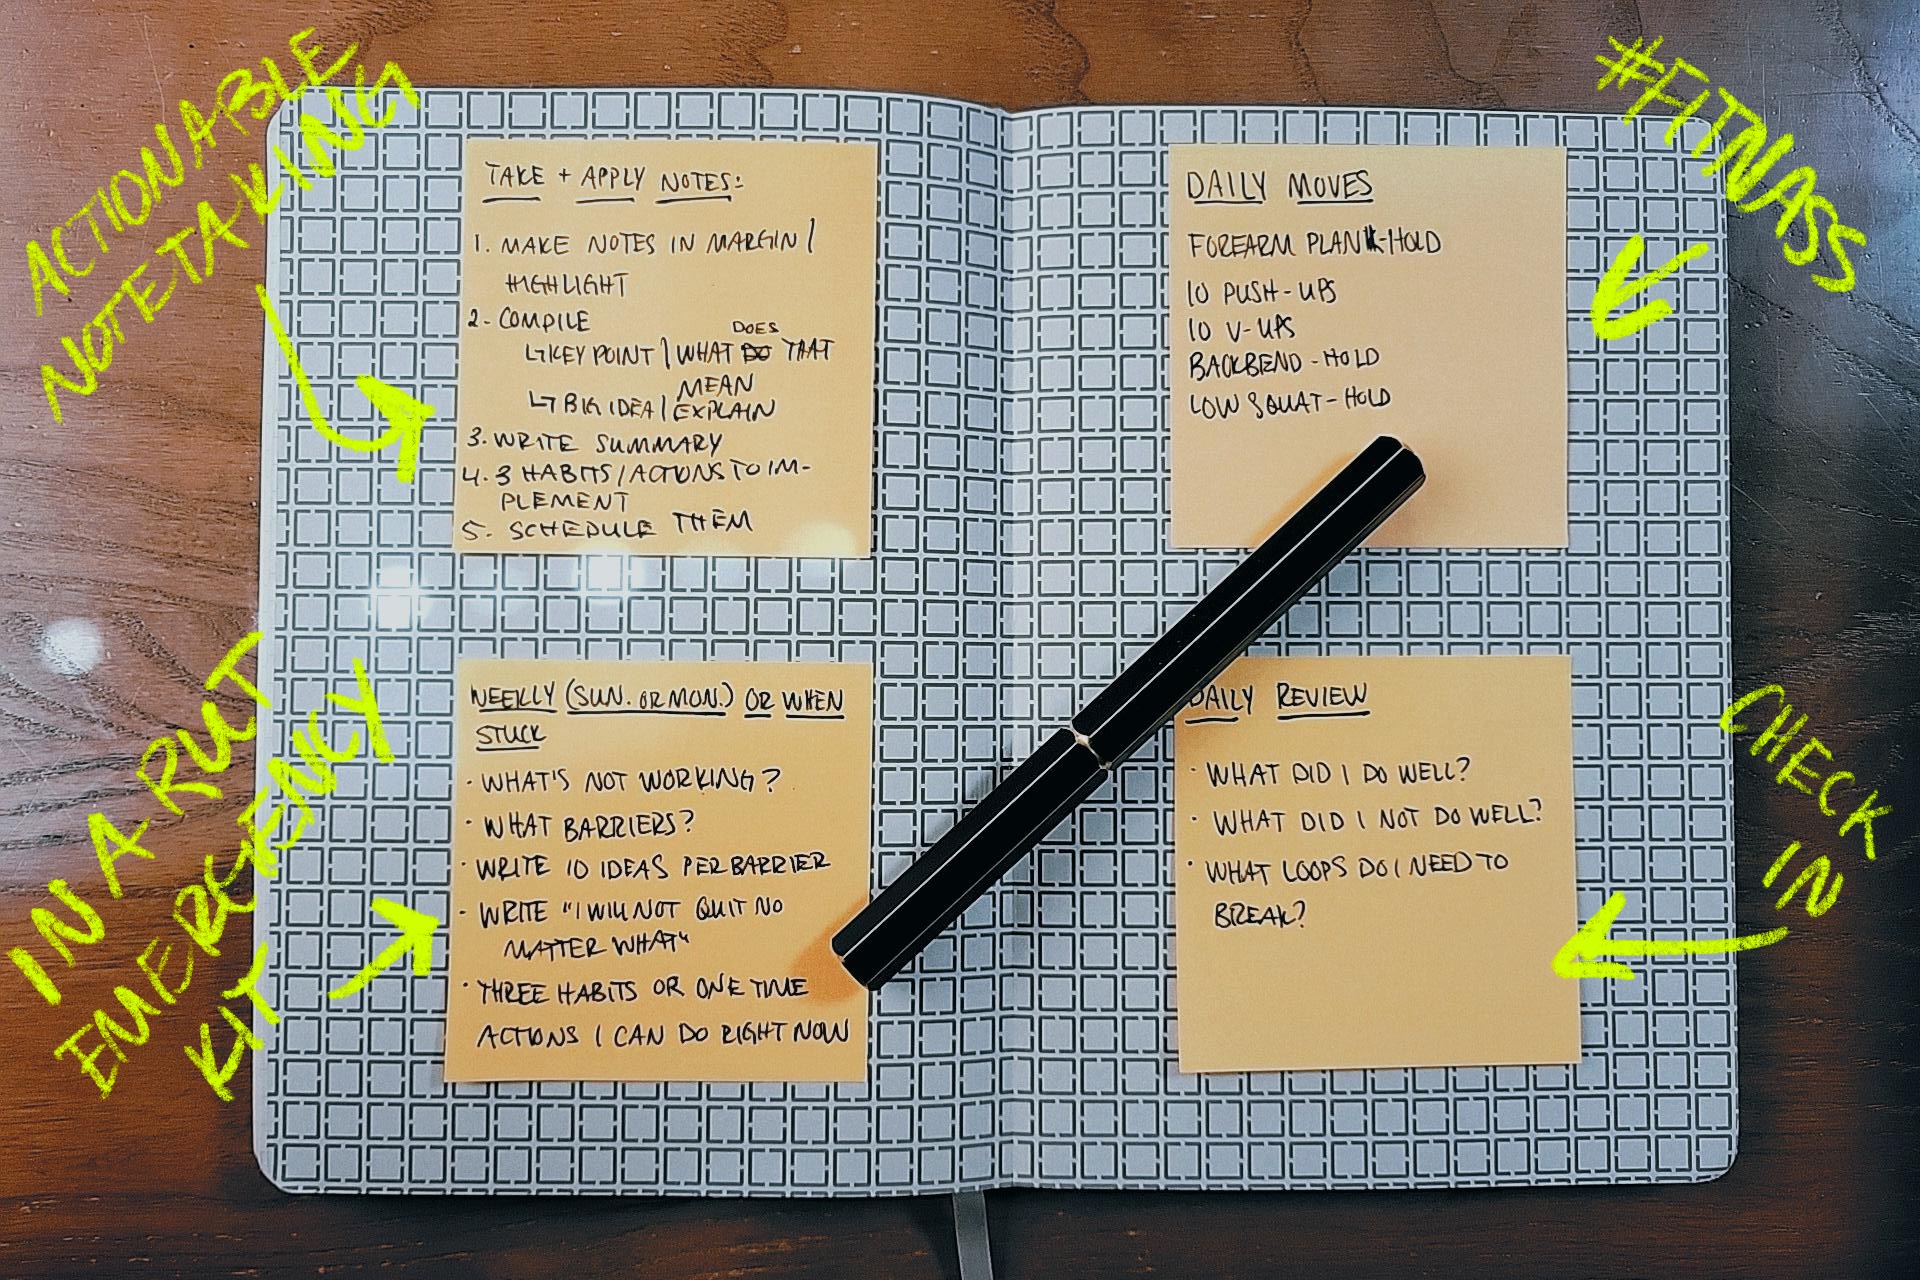 ACTIONABLE
NOTETAKING
TAKE + APPLY NOTES:
1. MAKE NOTES IN MARGIN /
HIGHLIGHT
2. COMPILE
↳ KEY POINT / WHAT DOES THAT
MEAN
↳ BIG IDEA / EXPLAIN
3. WRITE SUMMARY
4. 3 HABITS / ACTIONS TO IM-
PLEMENT
5. SCHEDULE THEM
#FITNASS
DAILY MOVES
FOREARM PLANK-HOLD
10 PUSH-UPS
10 V-UPS
BACKBEND-HOLD
LOW SQUAT-HOLD
IN A RUT
EMERGENCY
KIT
WEEKLY (SUN. OR MON.) OR WHEN
STUCK
· WHAT'S NOT WORKING?
· WHAT BARRIERS?
· WRITE 10 IDEAS PER BARRIER
· WRITE "I WILL NOT QUIT NO
MATTER WHAT"
· THREE HABITS OR ONE TIME
ACTIONS I CAN DO RIGHT NOW
CHECK
IN
DAILY REVIEW
· WHAT DID I DO WELL?
· WHAT DID I NOT DO WELL?
· WHAT LOOPS DO I NEED TO
BREAK?